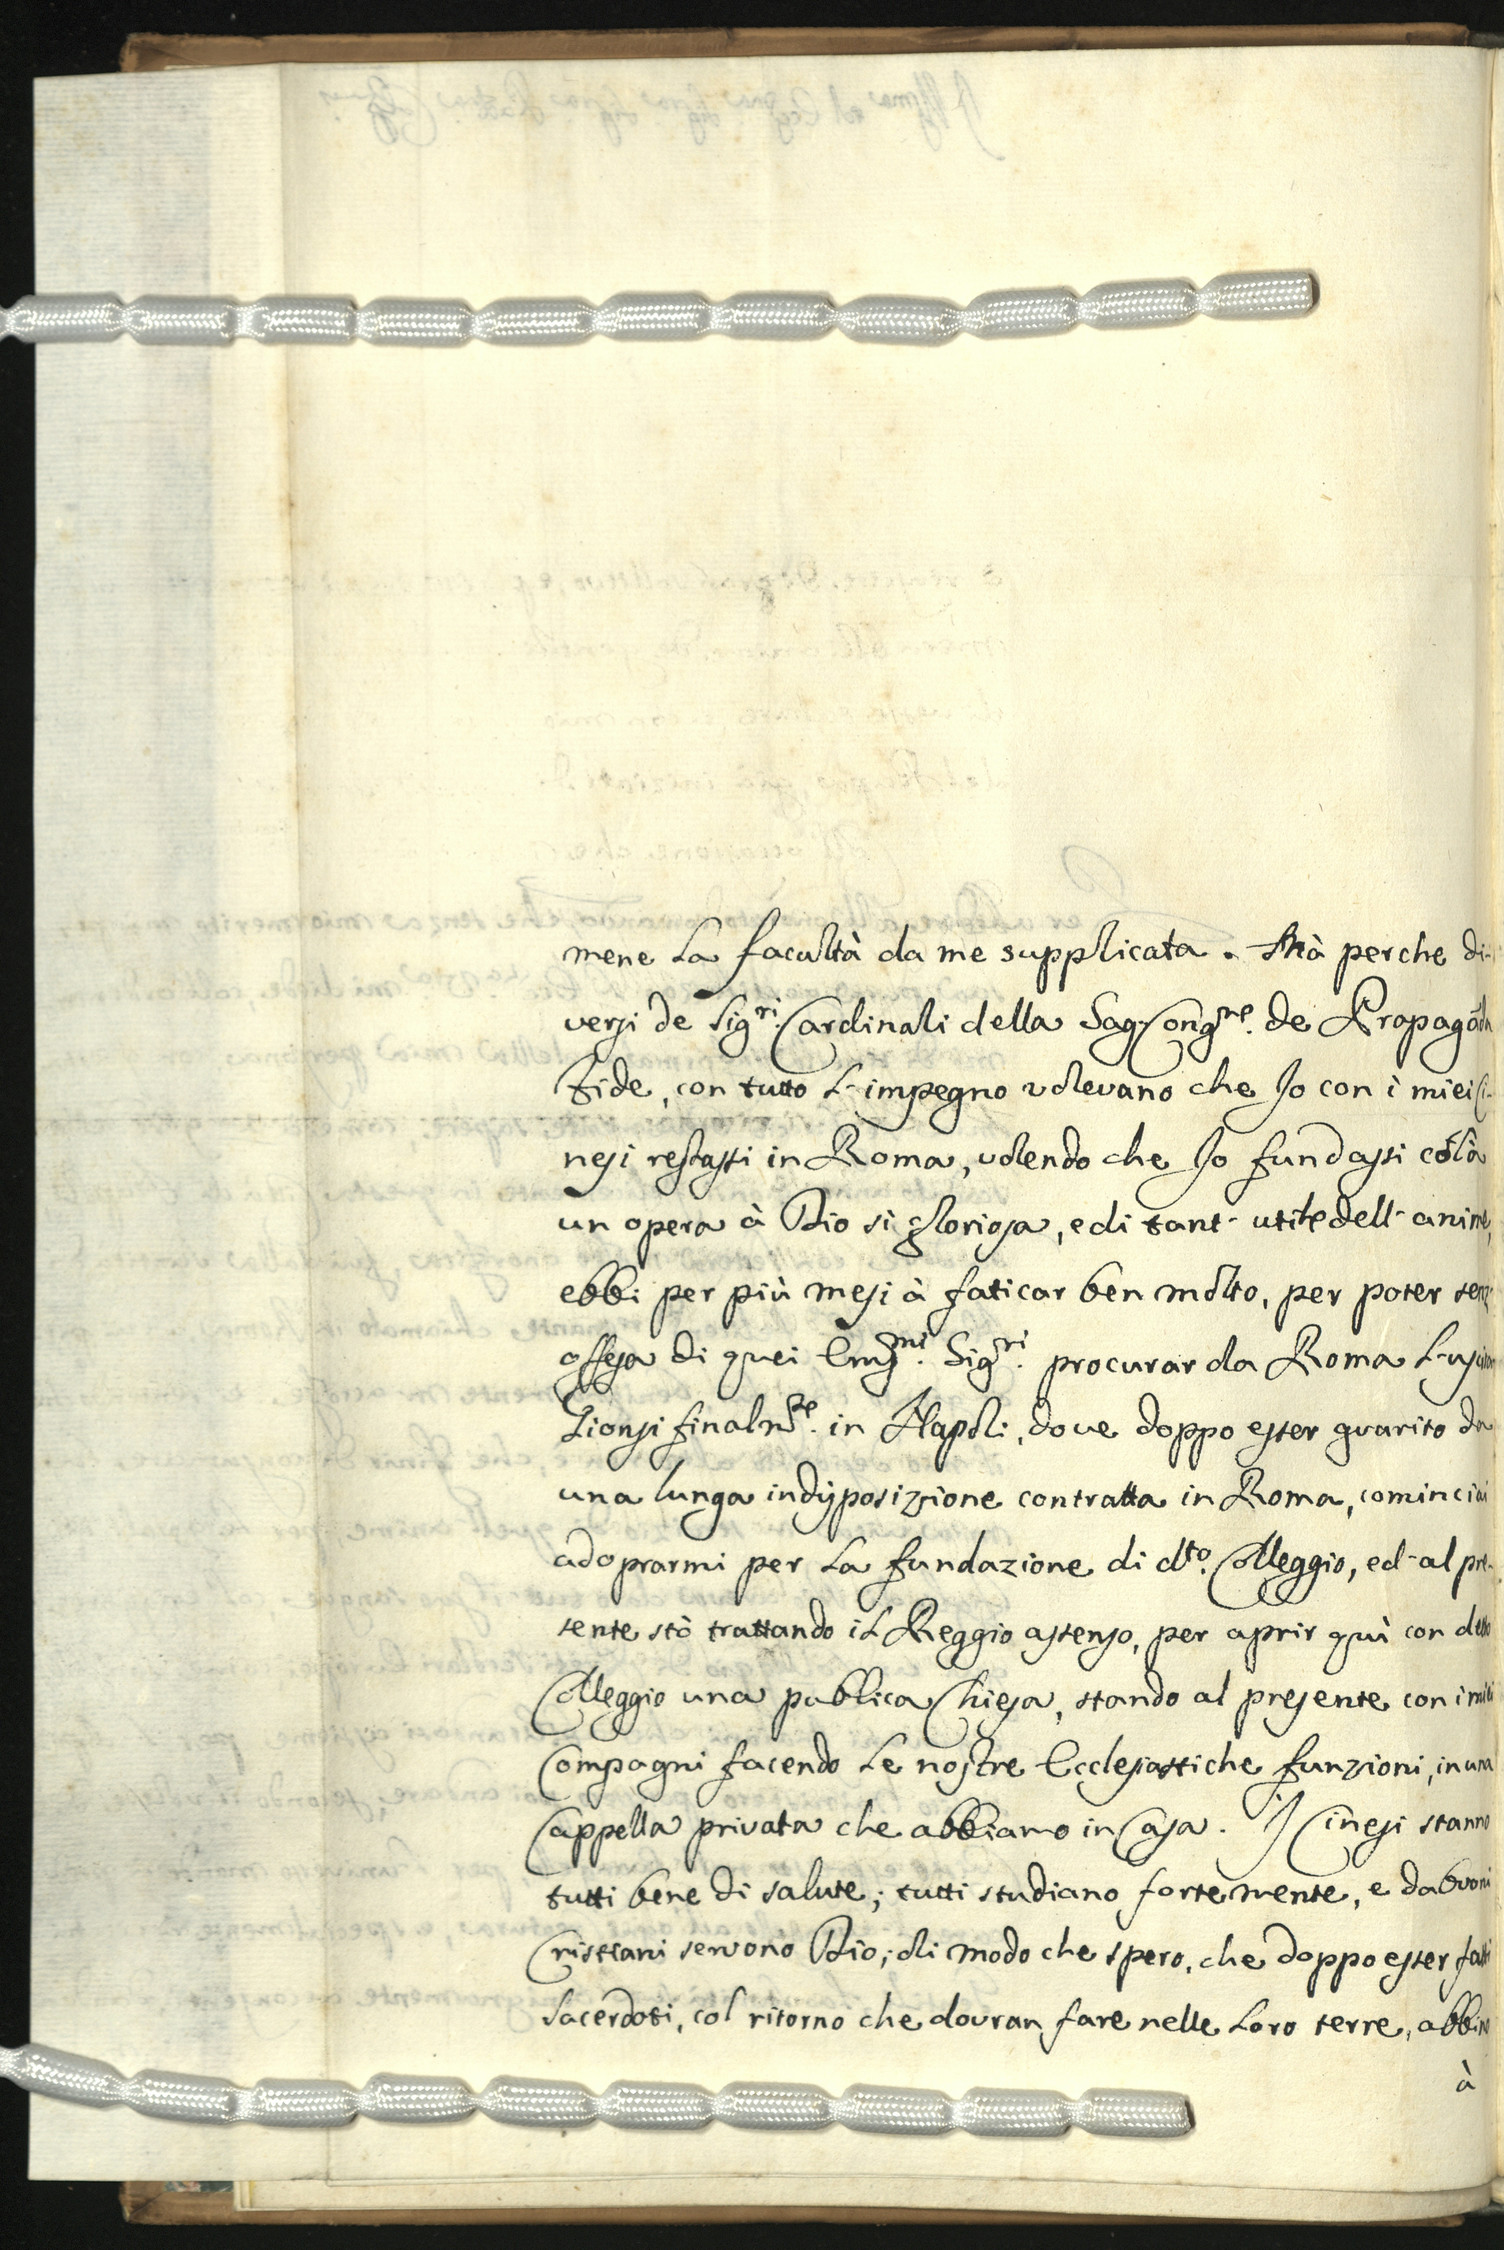 mene la facultà da me supplicata. Mà perche di-
versi de Sig.ri Cardinali della Sag. Cong.ne de Propagãda
Fide, con tutto l'impegno volevano che Io con i miei Ci-
nesi restassi in Roma, volendo che Io fundassi colà
un opera à Dio sì gloriosa, e di tant' utile dell' anime,
ebbi per più mesi à faticar ben molto, per poter senz'
offesa di quei Em.mi Sig.ri procurar da Roma l'uscita
Gionsi finalm.te in Napoli, dove doppo esser guarito da
una lunga indisposizione contratta in Roma, cominciai
adoprarmi per la fundazione di d.to Colleggio, ed al pre-
sente stò trattando il Reggio assenso, per aprir quì con detto
Colleggio una publica Chiesa, stando al presente con i miei
Compagni facendo le nostre Ecclesiastiche funzioni, in una
Cappella privata che abbiamo in Casa. I Cinesi stanno
tutti bene di salute; tutti studiano fortemente, e da buoni
Cristiani servono Dio; di modo che spero, che doppo esser fatti
Sacerdoti, col ritorno che dovran fare nelle loro terre, abbino
à